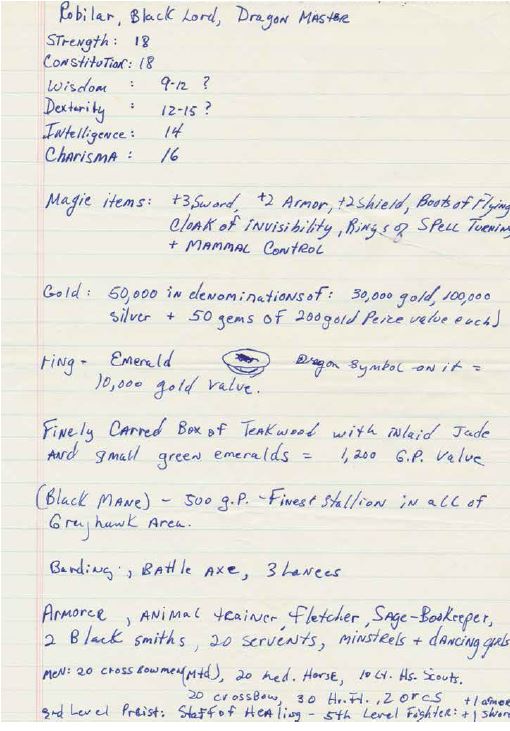 Robilar, Black Lord, Dragon Master
Strength: 18
Constitution: 18
Wisdom : 9-12 ?
Dextarity : 12-15 ?
Intelligence: 14
Charisma : 16
Magic items: +3 Sword, +2 Armor, +2 Shield, Boots of Flying
Cloak of invisibility, Rings of Spell Turning
+ Mammal Control
Gold: 50,000 in denominations of: 30,000 gold, 100,000
silver + 50 gems of 200 gold Peice value each)
ring - Emerald Dragon symbol on it =
10,000 gold value.
Finely Carved Box of Teakwood with inlaid Jade
and small green emeralds = 1,200 G.P. Value
(Black Mane) - 500 g.P. - Finest Stallion in all of
Greyhawk Area.
Barding, Battle Axe, 3 Lances
Armorer, Animal trainer, Fletcher, Sage-Bookeeper,
2 Black smiths, 20 servents, minstrels + dancing girls
Men: 20 crossbowmen (Mtd), 20 Med. Horse, 10 Lt. Hs. Scouts.
20 crossbow, 30 Hv. Ft., 2 orcs +1 armor
3rd Level Preist: Staff of Healing - 5th Level Fighter: +1 Sword